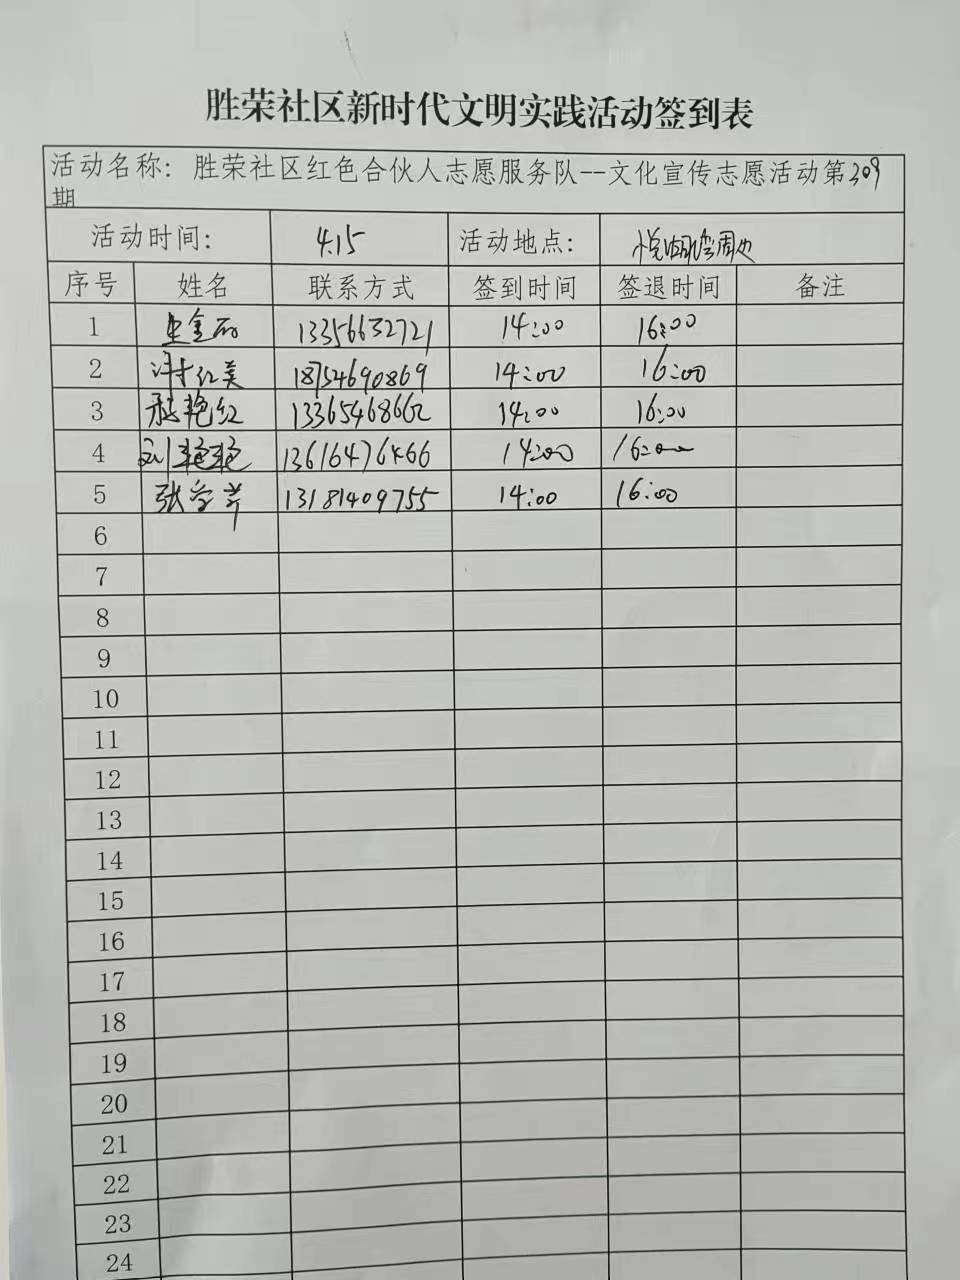 胜荣社区新时代文明实践活动签到表
活动名称：胜荣社区红色合伙人志愿服务队--文化宣传志愿活动第309
期
活动时间： 4.15 活动地点： 悦湖湾周边
序号 姓名 联系方式 签到时间 签退时间 备注
1 13356632721 14:00 16:00
2 红美 18754690869 14:00 16:00
3 艳红 14:00 16:00
4 刘艳艳 14:00 16:00
5 张学芹 13181409755 14:00 16:00
6
7
8
9
10
11
12
13
14
15
16
17
18
19
20
21
22
23
24